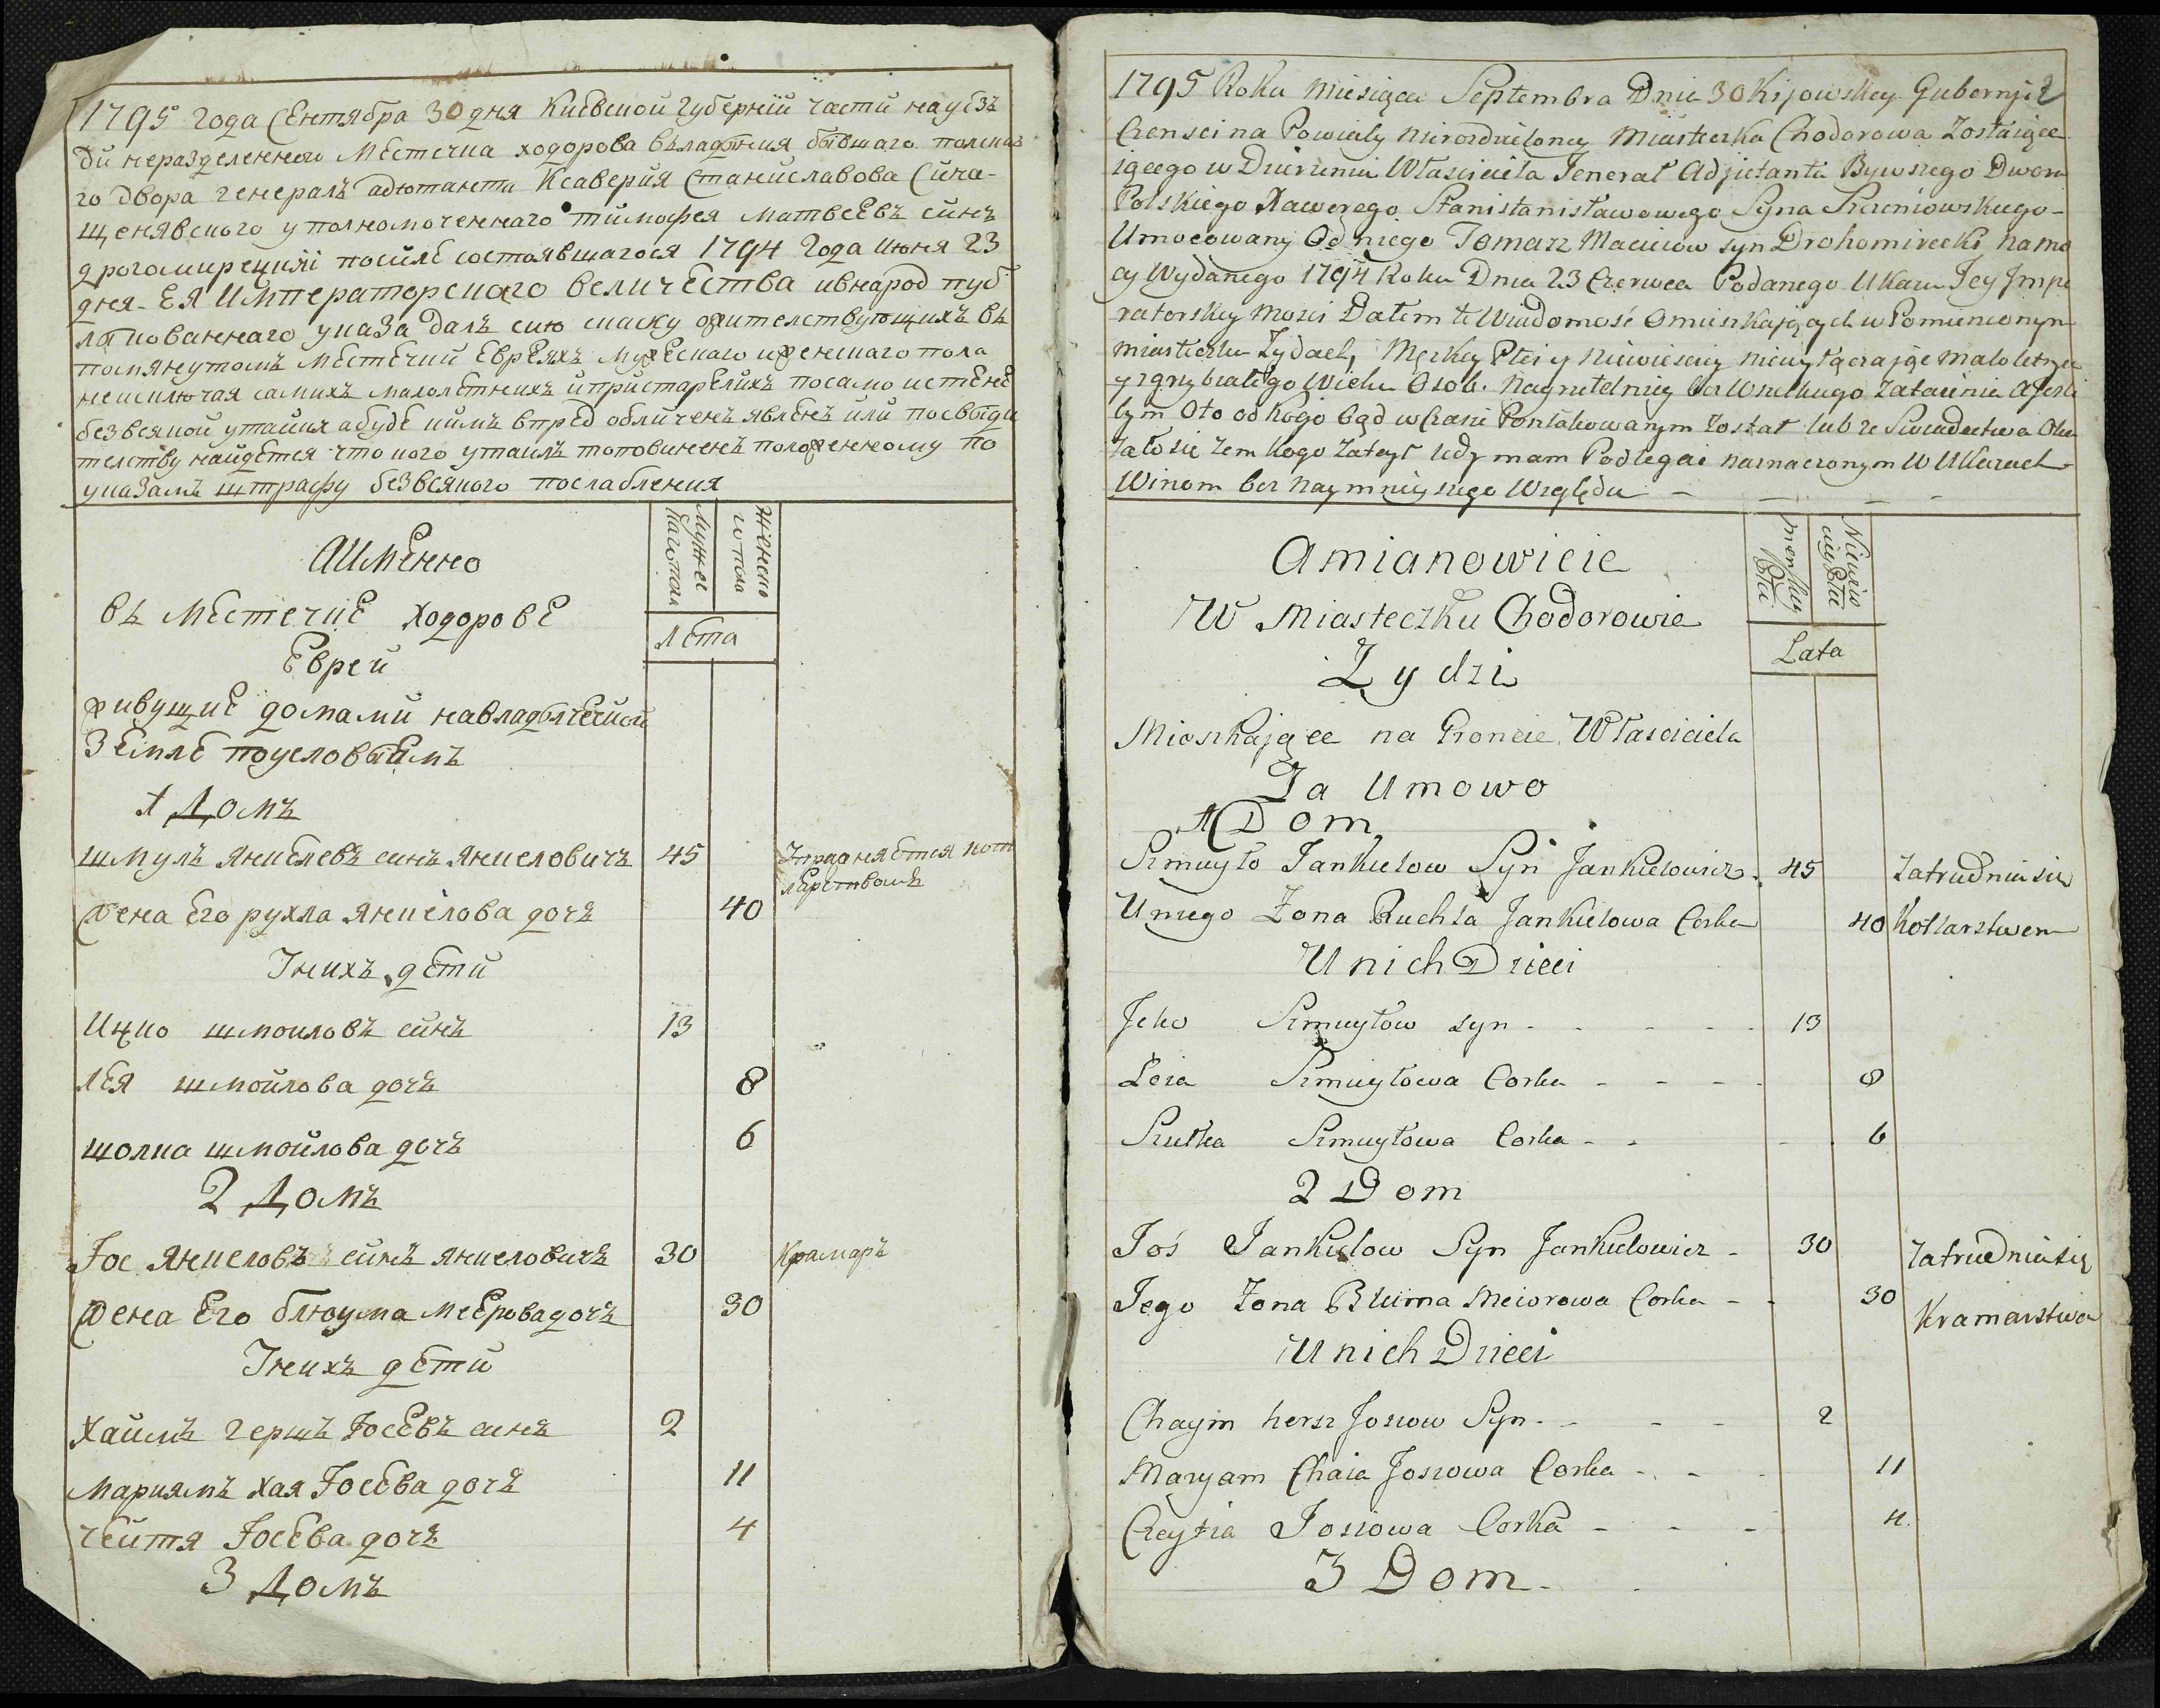 1795 года Сентября 30 дня Киевской губернїи части на уѣз
ди неразделенного Местечка ходорова въ владѣния бывшаго полска
го двора генералъ адютанта Ксаверия Станиславова Сина-
щенявского уполномоченнаго тимофея матвеевъ синъ
дрогомирецкий посиле состоявшагося 1794 года Июня 23
дня - ЕЯ Императорского величества ивнарод пуб
ликованнаго указа далъ сию сказку ожителствующихъ въ
помянутомъ местечки Евреяхъ мужескаго иженскаго пола
неисключая самихъ малолетнихъ ипристарелихъ посамо истене
безвсякой утайки абуде кимъ впред обличенъ явленъ или посвиди
телству найдется что кого утаилъ топовиненъ положенному по
указамъ штрафу безвсякого послабления
Аименно
въ Местечке ходорове
Евреи
живущие домами навладѣлческой
Земле поусловыямъ
мужеска го пола
женско го пола
лета
1 Домъ
шмулъ янкелевъ синъ янкеловичъ 45 Упражняется кот
лярствомъ
жена Его рухла янкелова дочъ 40
Унихъ дети
Ицко шмоиловъ синъ 13
лея шмойлова дочъ 8
шолка шмойлова дочъ 6
2 Домъ
Iос янкеловъ синъ янкеловичъ 30 Крамаръ
жена Его блюума меерова дочъ 30
Унихъ дети
хаимъ гершъ Iосевъ синъ 2
мариямъ хая Iосева дочъ 11
чейтя Iосева дочъ 4
3 Домъ
1795 Roku Miesiąca Septembra Dnia 30 Kijowskey Gubernyi z
Czensci na Powiaty nierozdzieloney Miasteczka Chodorowa Zostaiące
iącego w Dzierzeniu Własciciela Jenerał Adjutanta Bywszego Dworu
Polskiego Xawerego Stanistanisławowego Syna Szczeniowskiego -
Umocowany Od niego Tomasz Macieiow syn Drohomirecki na mo
cy Wydanego 1794 Roku Dnia 23 Czerwca Podanego Ukazu Jey Impe
ratorskey Mosci Dałem tę Wiadomość Omieszkaiących w Pomienionym
Miasteczku Żydach, Męzkey Płci y Niewiesciey niewyłączaiąc małoletnych
y zgrzybiałego Wieku Osob. Nayrzetelniey bez Wszelkiego Zataienia Ajesli
bym Oto od kogo bąd w czasie Poszlakowanym został lub ze Swiadectwa Oka
zało się zem kogo zataył tedy mam Podlegać naznaczonym W Ukazach
Winom bez naymnieyszego Względu
Amianowicie
W Miasteczku Chodorowie
Żydzi
Mieszkaiące na Groncie Własciciela
Za Umowo
menskiey Płci
Niewiesciey Płci
Lata
1 Dom
Szmuyło Jankielow Syn Jankielowicz 45 Zatrudnia się
Uniego Żona Ruchla Jankielowa Corka 40 Kotlarstwem
Unich Dzieci
Icko Szmuyłow syn 13
Leia Szmuyłowa Corka 8
Szulka Szmuyłowa Corka 6
2 Dom
Joś Jankielow Syn Jankielowicz 30 Zatrudnia się
Jego Żona Bluma Meiorowa Corka 30 Kramarstwa
Unich Dzieci
Chaym hersz Josiow Syn 2
Maryam Chaia Josiowa Corka 11
Czeytia Josiowa Corka 4
3 Dom